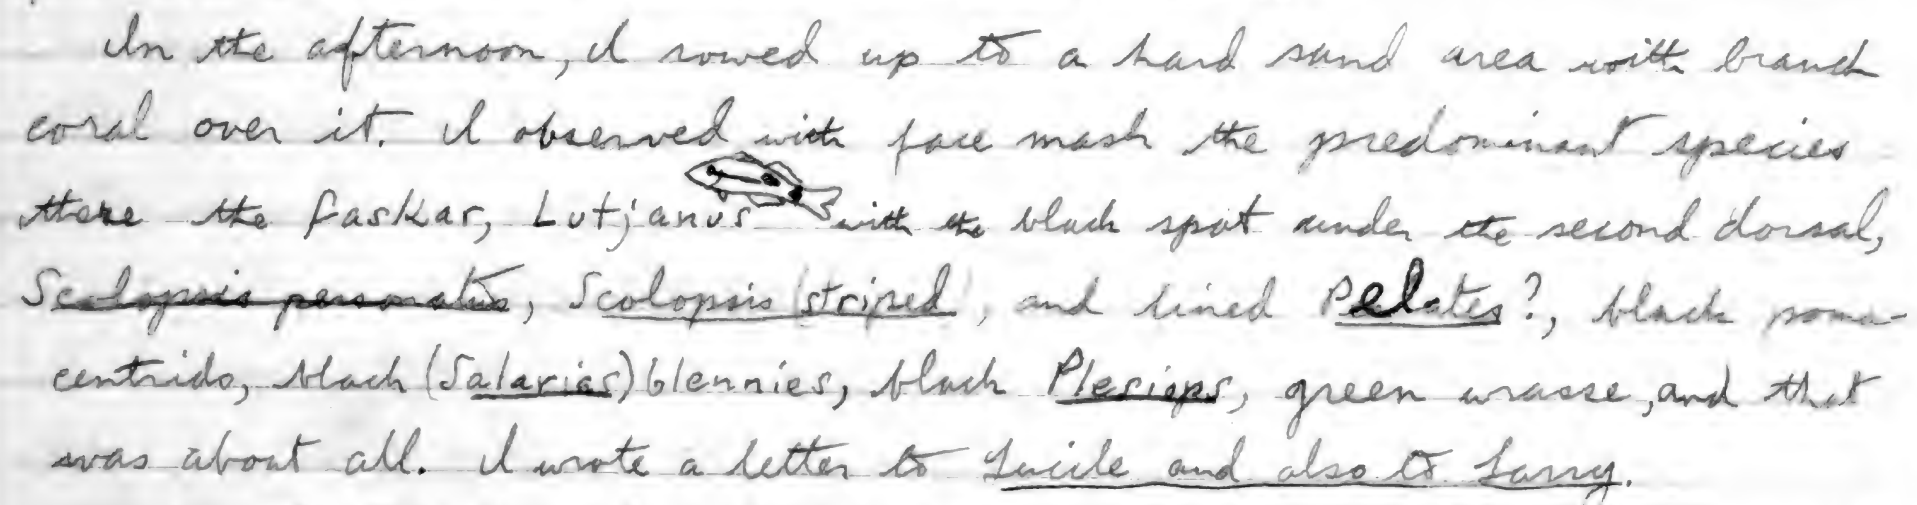 In the afternoon, I rowed up to a hard sand area with branch
coral over it. I observed with face mask the predominant species
there the faskar, Lutjanus with the black spot under the second dorsal,
Scolopsis personatus, Scolopsis (striped), and lined Pelates?, black poma-
centrids, black (Salarias) blennies, black Plesiops, green wrasse, and that
was about all. I wrote a letter to Lucile and also to Larry.